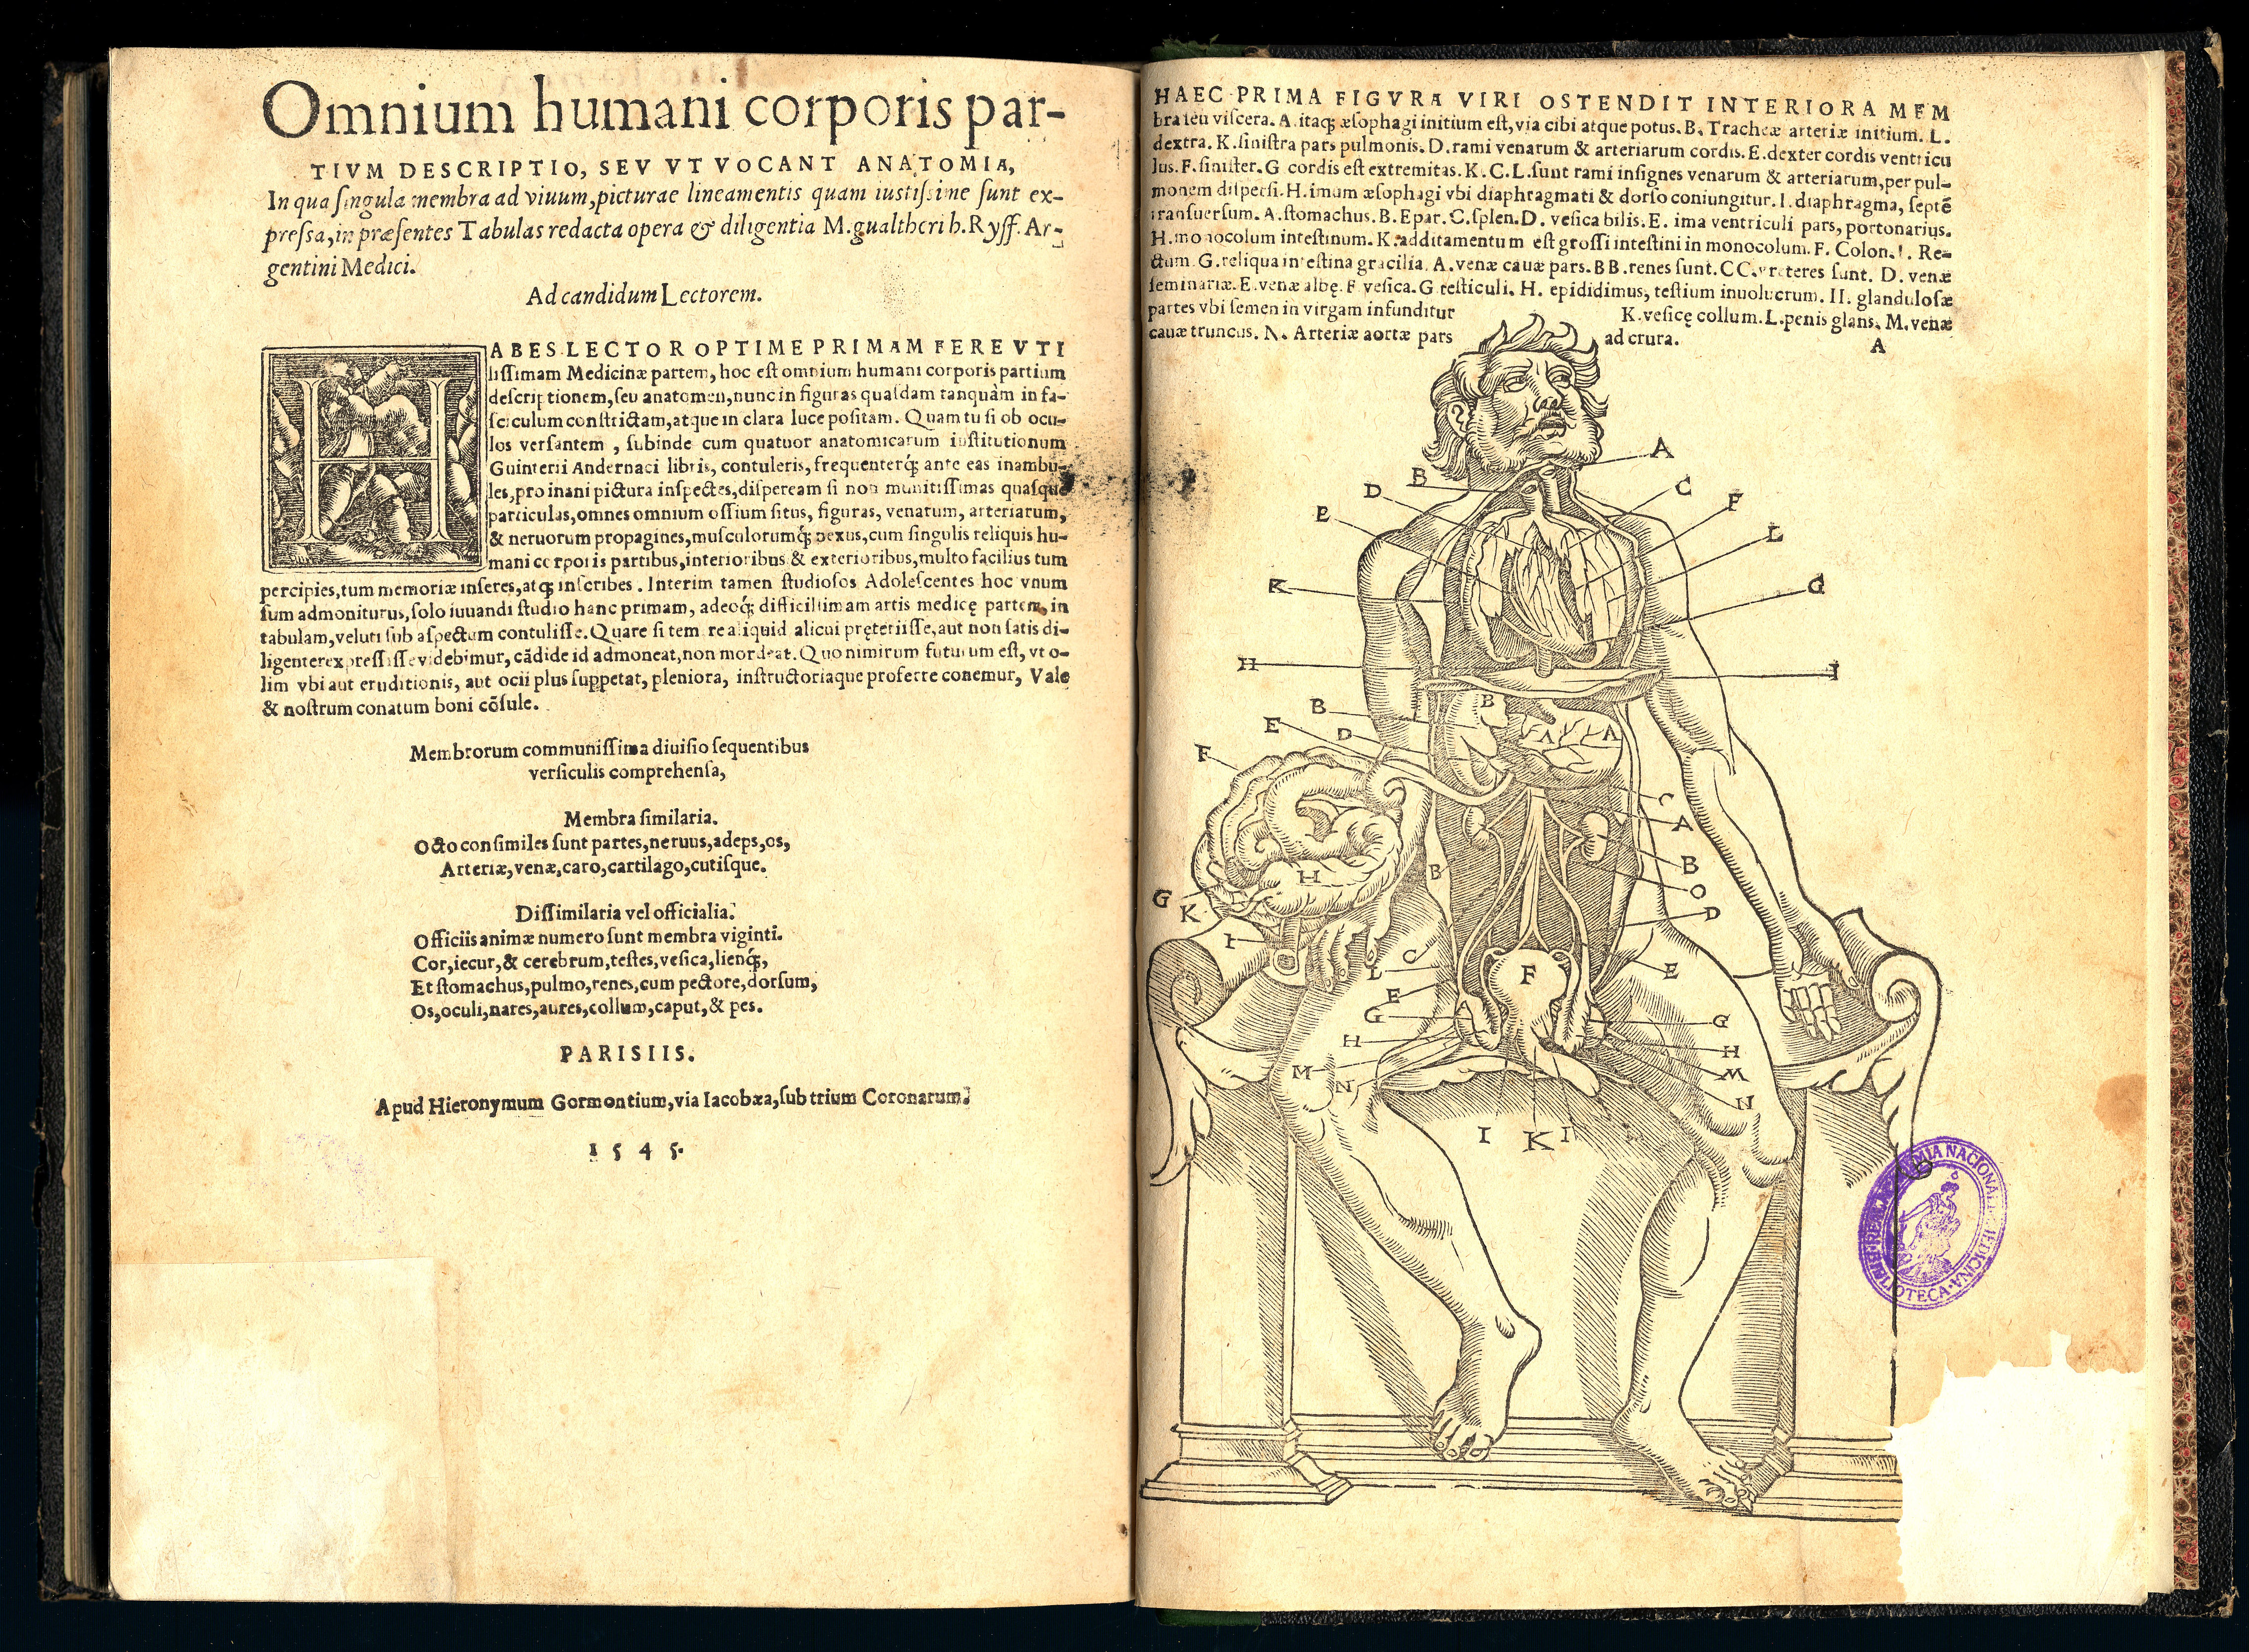 Omnium humani corporis par-
TIVM DESCRIPTIO, SEV VT VOCANT ANATOMIA,
In qua singula membra ad viuum, picturae lineamentis quam iustissime sunt ex-
pressa, in præsentes Tabulas redacta opera & diligentia M. gualtheri h. Ryff. Ar-
gentini Medici.
Ad candidum Lectorem.
HABES LECTOR OPTIME PRIMAM FERE VTI
lissimam Medicinæ partem, hoc est omnium humani corporis partium
descriptionem, seu anatomen, nunc in figuras quasdam tanquàm in fa-
sciculum constrictam, atque in clara luce positam. Quam tu si ob ocu-
los versantem, subinde cum quatuor anatomicarum institutionum
Guinterii Andernaci libris, contuleris, frequenterq́; ante eas inambu-
les, pro inani pictura inspectes, dispeream si non munitissimas quasque
particulas, omnes omnium ossium situs, figuras, venarum, arteriarum,
& neruorum propagines, musculorumq́; nexus, cum singulis reliquis hu-
mani corporis partibus, interioribus & exterioribus, multo facilius tum
percipies, tum memoriæ inseres, atq; inscribes. Interim tamen studiosos Adolescentes hoc vnum
sum admoniturus, solo iuuandi studio hanc primam, adeoq́; difficillimam artis medicę partem, in
tabulam, veluti sub aspectum contulisse. Quare si temere aliquid alicui pręteriisse, aut non satis di-
ligenter expressisse videbimur, cãdide id admoneat, non mordeat. Quo nimirum futurum est, vt o-
lim vbi aut eruditionis, aut ocii plus suppetat, pleniora, instructioraque proferre conemur, Vale
& nostrum conatum boni cõsule.
Membrorum communissima diuisio sequentibus
versiculis comprehensa,
Membra similaria.
Octo consimiles sunt partes, neruus, adeps, os,
Arteriæ, venæ, caro, cartilago, cutisque.
Dissimilaria vel officialia.
Officiis animæ numero sunt membra viginti.
Cor, iecur, & cerebrum, testes, vesica, lienq́;,
Et stomachus, pulmo, renes, cum pectore, dorsum,
Os, oculi, nares, aures, collum, caput, & pes.
PARISIIS.
Apud Hieronymum Gormontium, via Iacobæa, sub trium Coronarum.
1545.
HAEC PRIMA FIGVRA VIRI OSTENDIT INTERIORA MEM
bra seu viscera. A. itaq; æsophagi initium est, via cibi atque potus. B. Tracheæ arteriæ initium. L.
dextra. K. sinistra pars pulmonis. D. rami venarum & arteriarum cordis. E. dexter cordis ventricu
lus. F. sinister. G cordis est extremitas. K. C. L. sunt rami insignes venarum & arteriarum, per pul-
monem dispersi. H. imum æsophagi vbi diaphragmati & dorso coniungitur. I. diaphragma, septẽ
transuersum. A. stomachus. B. Epar. C. splen. D. vesica bilis. E. ima ventriculi pars, portonarius.
H. monocolum intestinum. K. additamentum est grossi intestini in monocolum. F. Colon. I. Re-
ctum. G. reliqua intestina gracilia. A. venæ cauæ pars. BB. renes sunt. CC. vreteres sunt. D. venæ
seminariæ. E. venæ albę. F vesica. G testiculi. H. epididimus, testium inuolucrum. II. glandulosæ
partes vbi semen in virgam infunditur K. vesicę collum. L. penis glans. M. venæ
cauæ truncus. N. Arteriæ aortæ pars ad crura.
A
A
B
D
C
E
F
L
K
G
H
I
B
B
E
D
A
A
F
C
A
B
B
H
G
O
K
D
I
C
L
F
E
E
G
G
H
H
M
M
N
N
I
K
I
BIBLIOTECA · REAL ACADEMIA NACIONAL DE MEDICINA